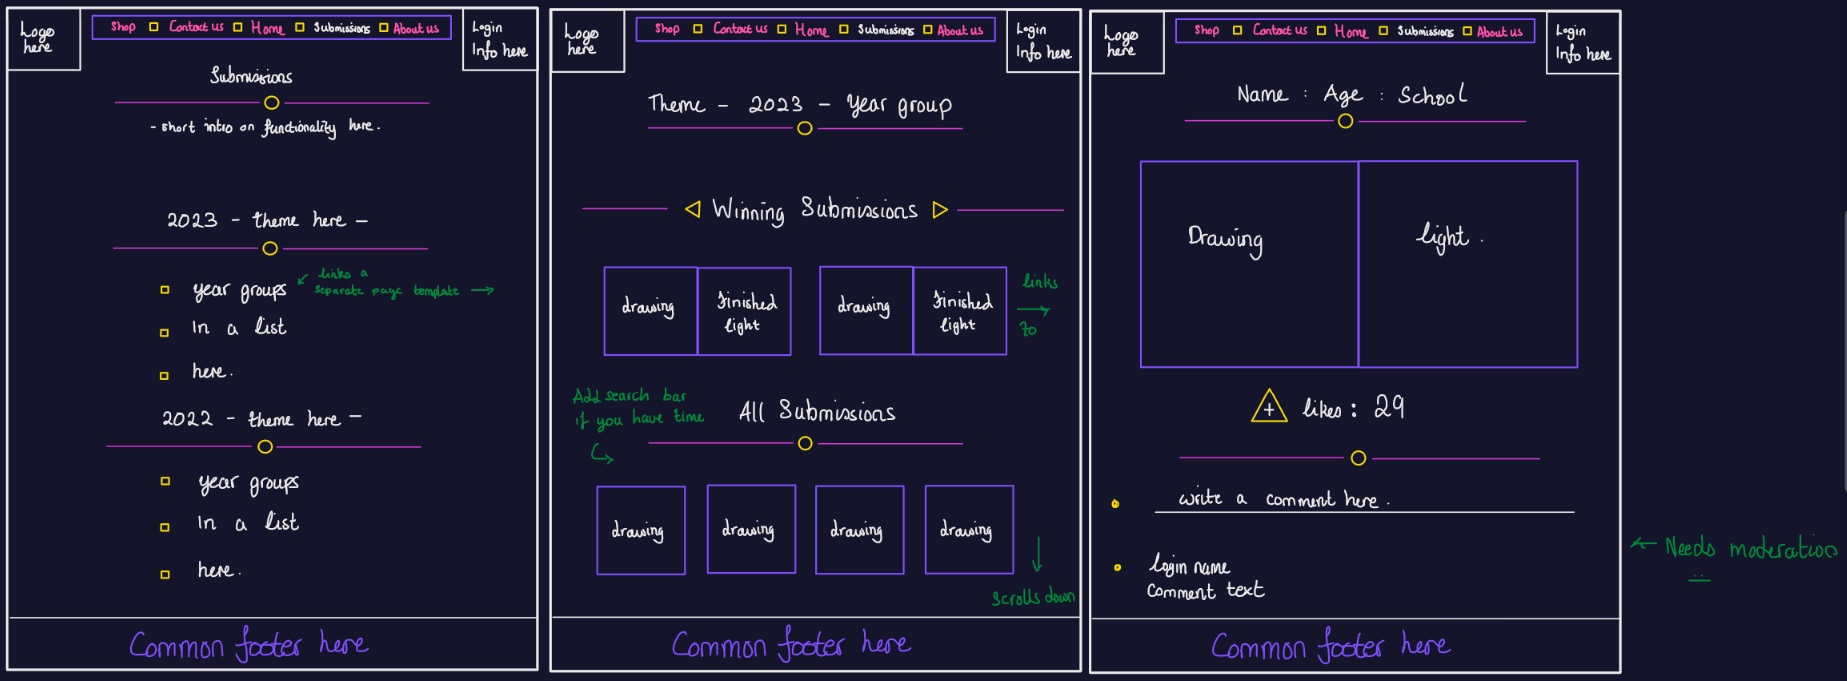 Logo
here
Shop Contact us Home Submissions About us
Login
Info here
Submissions
- short intro on functionality here.
2023 - theme here -
year groups
links a
separate page template
In a list
here.
2022 - theme here -
year groups
In a list
here.
Common footer here
Logo
here
Shop Contact us Home Submissions About us
Login
Info here
Theme - 2023 - Year group
Winning Submissions
drawing
Finished
light
drawing
Finished
light
links
to
Add search bar
if you have time
All Submissions
drawing
drawing
drawing
drawing
Scrolls down
Common footer here
Logo
here
Shop Contact us Home Submissions About us
Login
Info here
Name : Age : School
Drawing
light.
+ likes: 29
write a comment here.
login name
Comment text
Needs moderation
Common footer here